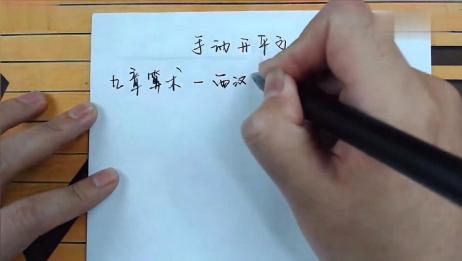 手动开平方
九章算术－西汉